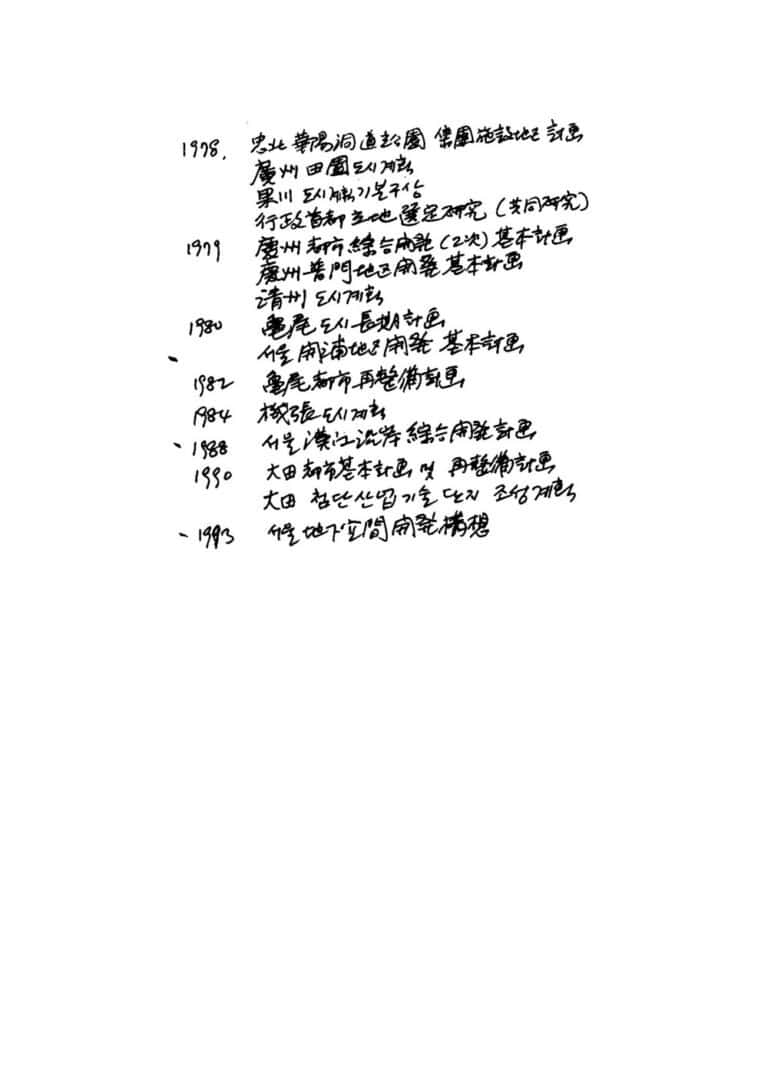 1978. 忠北 華陽洞 道立公園 集團施設地区 計画
廣州 田園도시계획
果川 도시계획기본구상
行政首都 立地 選定研究 (共同研究)
1979 慶州 都市 綜合開発 (2次) 基本計画
慶州 普門地区開発 基本計画
清州 도시계획
1980 亀尾 도시 長期計画
서울 開浦地区開発 基本計画
1982 亀尾都市再整備計画
1984 機張도시계획
1988 서울 漢江沿岸 綜合開発計画
1990 大田都市基本計画 및 再整備計画
大田 첨단산업기술단지 조성계획
1993 서울 地下空間 開発構想